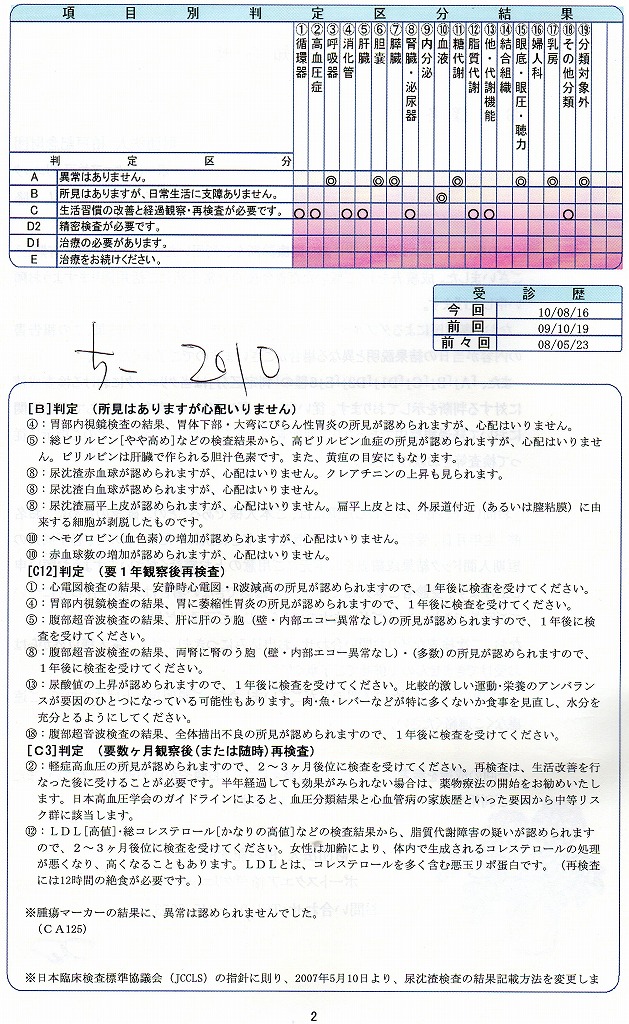 項目別判定区分結果
①循環器
②高血圧症
③呼吸器
④消化管
⑤肝臓
⑥胆嚢
⑦膵臓
⑧腎臓・泌尿器
⑨内分泌
⑩血液
⑪糖代謝
⑫脂質代謝
⑬他・代謝機能
⑭結合組織
⑮眼底・眼圧・聴力
⑯婦人科
⑰乳房
⑱その他分類
⑲分類対象外
判定区分
A 異常はありません。 ◎ ◎ ◎ ◎ ◎ ◎ ◎
B 所見はありますが、日常生活に支障ありません。 ◎
C 生活習慣の改善と経過観察・再検査が必要です。 ○ ○ ○ ○ ○ ○ ○ ○
D2 精密検査が必要です。
D1 治療の必要があります。
E 治療をお続けください。
受診歴
今回 10/08/16
前回 09/10/19
前々回 08/05/23
2010
[B]判定 (所見はありますが心配いりません)
④：胃部内視鏡検査の結果、胃体下部・大弯にびらん性胃炎の所見が認められますが、心配はいりません。
⑤：総ビリルビン[やや高め]などの検査結果から、高ビリルビン血症の所見が認められますが、心配はいりませ
ん。ビリルビンは肝臓で作られる胆汁色素です。また、黄疸の目安にもなります。
⑧：尿沈渣赤血球が認められますが、心配はいりません。クレアチニンの上昇も見られます。
⑧：尿沈渣白血球が認められますが、心配はいりません。
⑧：尿沈渣扁平上皮が認められますが、心配はいりません。扁平上皮とは、外尿道付近（あるいは膣粘膜）に由
来する細胞が剥脱したものです。
⑩：ヘモグロビン(血色素)の増加が認められますが、心配はいりません。
⑩：赤血球数の増加が認められますが、心配はいりません。
[C12]判定 (要１年観察後再検査)
①：心電図検査の結果、安静時心電図・R波減高の所見が認められますので、１年後に検査を受けてください。
④：胃部内視鏡検査の結果、胃に萎縮性胃炎の所見が認められますので、１年後に検査を受けてください。
⑤：腹部超音波検査の結果、肝に肝のう胞（壁・内部エコー異常なし）の所見が認められますので、１年後に検
査を受けてください。
⑧：腹部超音波検査の結果、両腎に腎のう胞（壁・内部エコー異常なし）・(多数)の所見が認められますので、
１年後に検査を受けてください。
⑬：尿酸値の上昇が認められますので、１年後に検査を受けてください。比較的激しい運動・栄養のアンバラン
スが要因のひとつになっている可能性もあります。肉・魚・レバーなどが特に多くないか食事を見直し、水分を
充分とるようにしてください。
⑱：腹部超音波検査の結果、全体描出不良の所見が認められますので、１年後に検査を受けてください。
[C3]判定 (要数ヶ月観察後(または随時)再検査)
②：軽症高血圧の所見が認められますので、２～３ヶ月後位に検査を受けてください。再検査は、生活改善を行
なった後に受けることが必要です。半年経過しても効果がみられない場合は、薬物療法の開始をお勧めいたし
ます。日本高血圧学会のガイドラインによると、血圧分類結果と心血管病の家族歴といった要因から中等リス
ク群に該当します。
⑫：ＬＤＬ[高値]・総コレステロール[かなりの高値]などの検査結果から、脂質代謝障害の疑いが認められます
ので、２～３ヶ月後位に検査を受けてください。女性は加齢により、体内で生成されるコレステロールの処理
が悪くなり、高くなることもあります。ＬＤＬとは、コレステロールを多く含む悪玉リポ蛋白です。（再検査
には12時間の絶食が必要です。）
※腫瘍マーカーの結果に、異常は認められませんでした。
（ＣＡ125）
※日本臨床検査標準協議会（JCCLS）の指針に則り、2007年5月10日より、尿沈渣検査の結果記載方法を変更しま
2